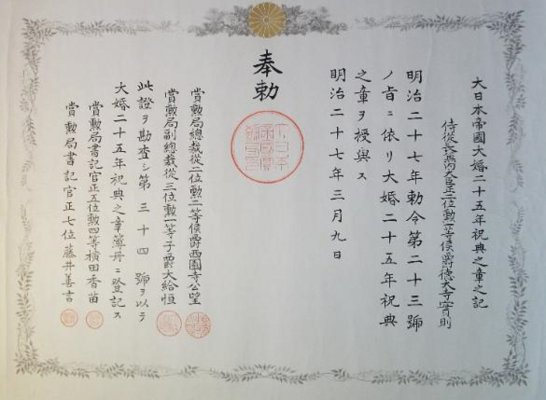 大日本帝國大婚二十五年祝典之章之記
侍從長 侯爵德大寺實則
明治二十七年勅令第二十三號
ノ旨ニ依リ大婚二十五年祝典
之章ヲ授與ス
明治二十七年三月九日
奉勅
賞勲局總裁從二位勲二等侯爵西園寺公望
賞勲局副總裁從三位勲一等子爵大給恒
此證ヲ勘査シ第三十四號ヲ以テ
大婚二十五年祝典之章簿冊ニ登記ス
賞勲局書記官正五位勲四等横田香苗
賞勲局書記官正七位藤井善言